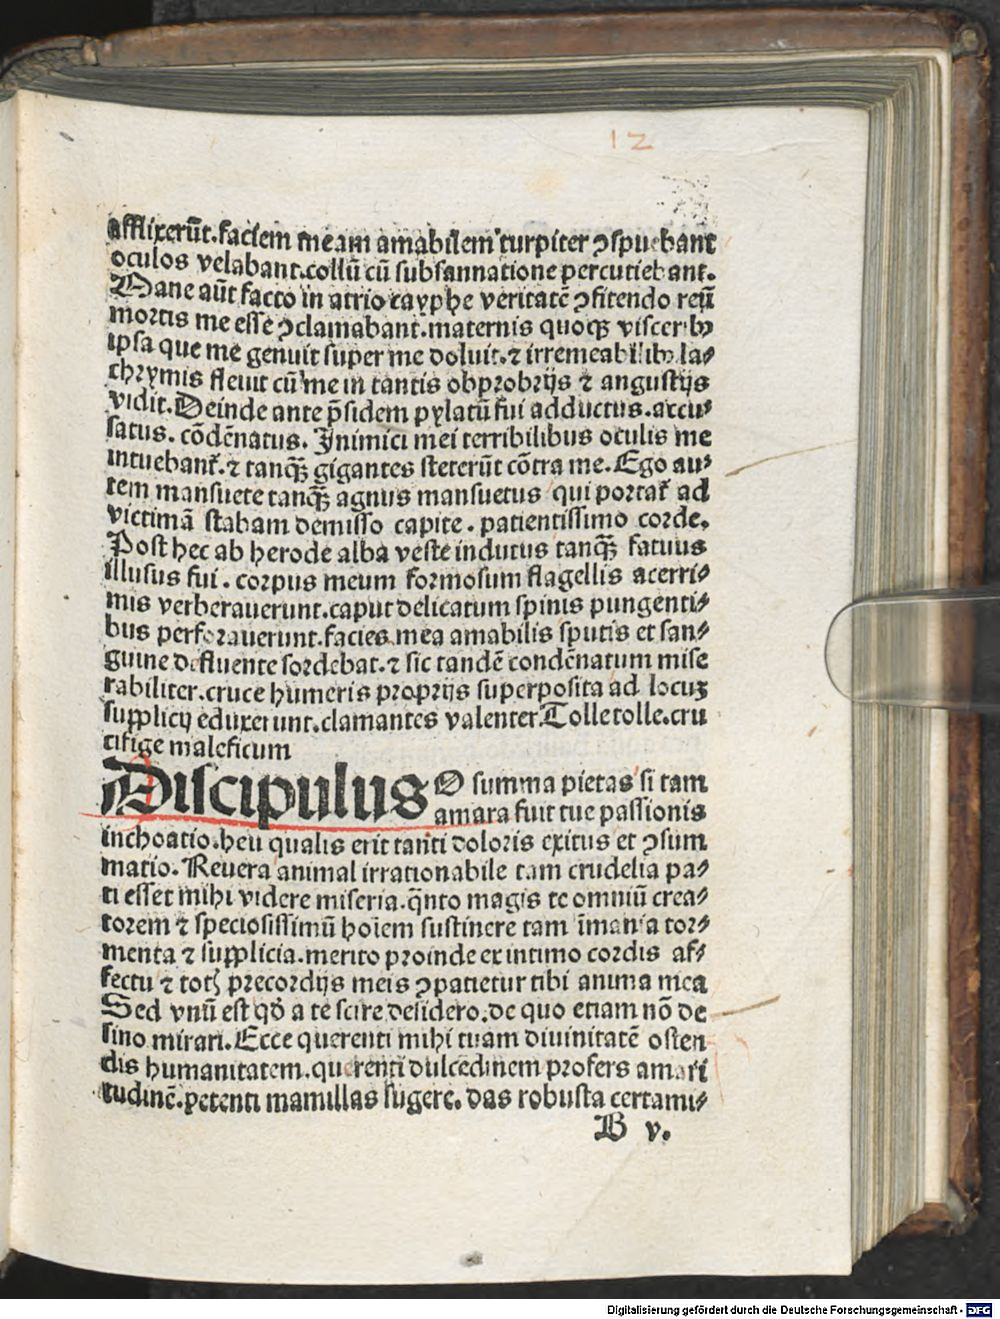 12
afflixerūt.faciem meam amabilem turpiter ↄspuebant
oculos velabant.collū cū subsannatione percutiebant.
Mane aūt facto in atrio cayphe veritatē ↄfitendo reū
mortis me esse ↄclamabant.maternis quoqꝫ visceribꝰ
ipsa que me genuit super me doluit.⁊ irremeabilibꝰ la⸗
chrymis fleuit cū me in tantis obprobrijs ⁊ angustijs
vidit.Deinde ante p̄sidem pylatū fui adductus.accu⸗
satus. cōdēnatus. Inimici mei terribilibus oculis me
intuebant̃.⁊ tanqꝫ̄ gigantes steterūt cōtra me.Ego au⸗
tem mansuete tanqꝫ̄ agnus mansuetus qui portat̃ ad
victimā stabam demisso capite . patientissimo corde.
Post hec ab herode alba veste indutus tanqꝫ̄ fatuus
illusus fui . corpus meum formosum flagellis acerri⸗
mis verberauerunt.caput delicatum spinis pungenti⸗
bus perforauerunt.facies mea amabilis sputis et san⸗
guine defluente sordebat.⁊ sic tandē condēnatum mise
rabiliter.cruce humeris proprijs superposita ad locuꝫ
supplicij eduxerunt.clamantes valenter Tolle tolle.cru
cifige maleficum
Discipulus O summa pietas si tam
amara fuit tue passionis
inchoatio.heu qualis erit tanti doloris exitus et ↄsum
matio. Reuera animal irrationabile tam crudelia pa⸗
ti esset mihi videre miseria.q̄nto magis te omniū crea⸗
torem ⁊ speciosissimū hoīem sustinere tam īmania tor⸗
menta ⁊ supplicia.merito proinde ex intimo cordis af⸗
fectu ⁊ totꝭ precordijs meis ↄpatietur tibi anima mea
Sed vnū est qđ a te scire desidero.de quo etiam nō de
sino mirari. Ecce querenti mihi tuam diuinitatē osten
dis humanitatem.querenti dulcedinem profers amari
tudinē.petenti mamillas sugere. das robusta certami⸗
B v.
Digitalisierung gefördert durch die Deutsche Forschungsgemeinschaft - DFG